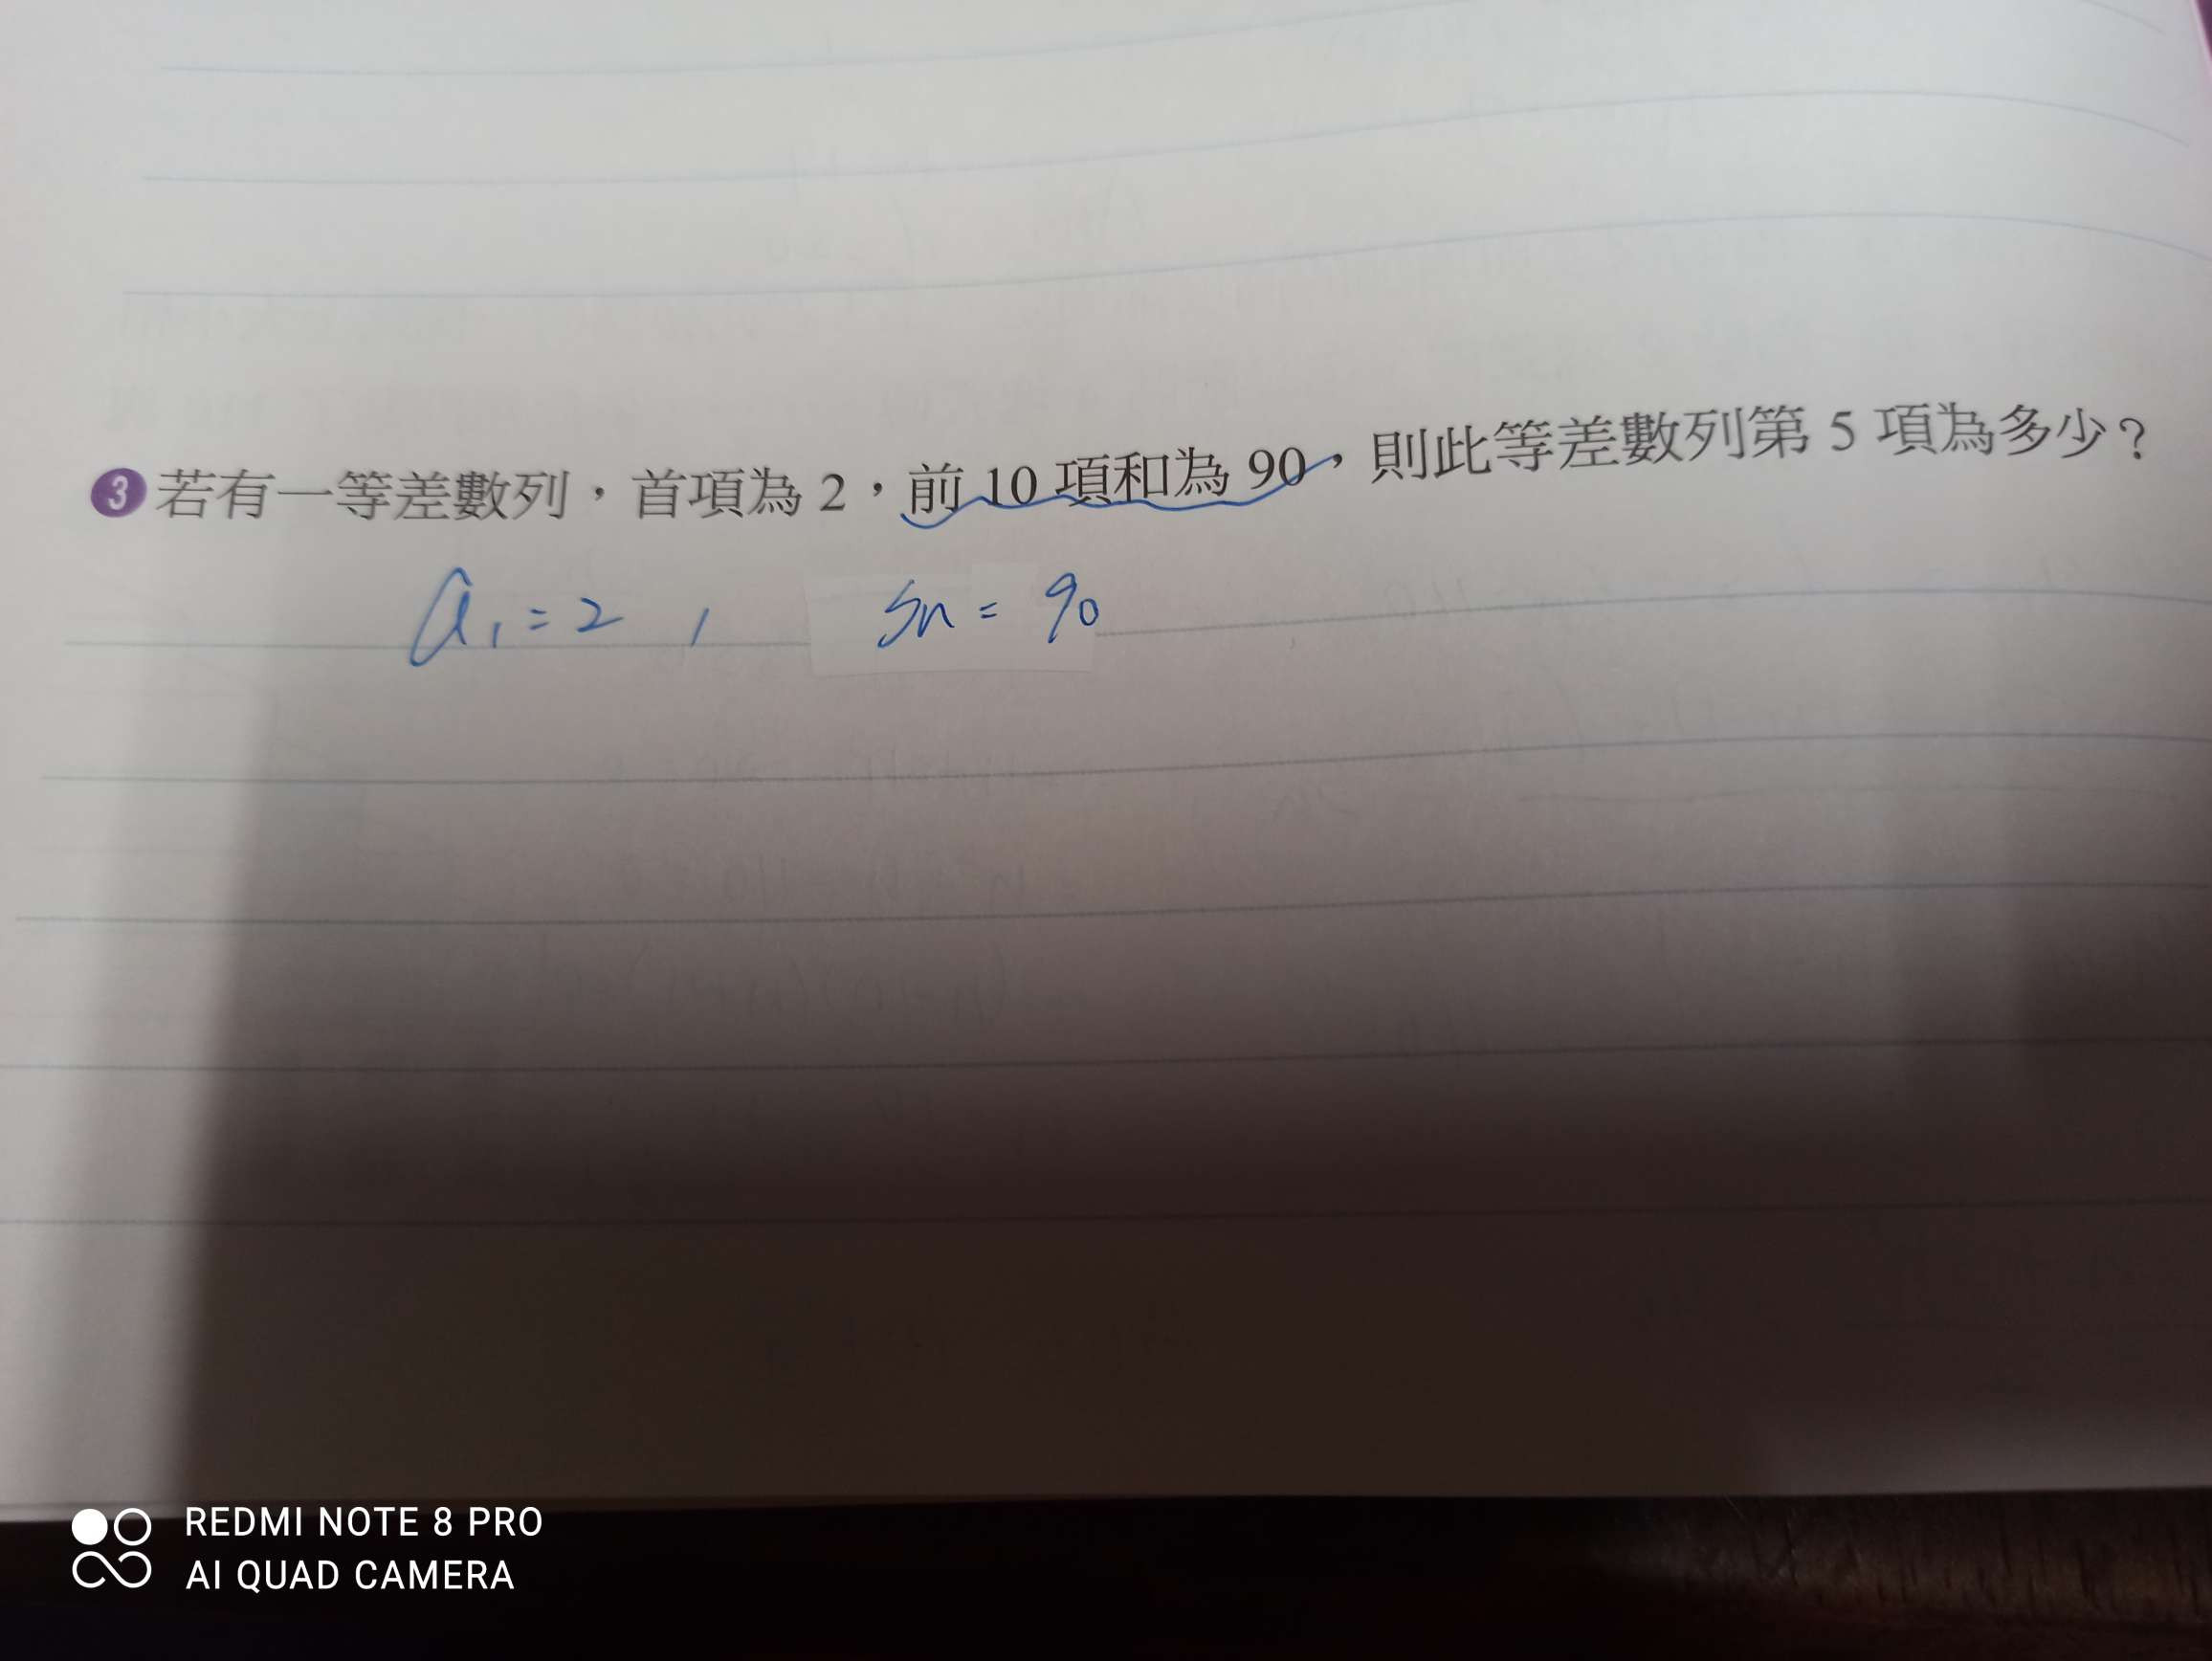 3 若有一等差數列，首項為 2，前 10 項和為 90，則此等差數列第 5 項為多少？
a₁ = 2 , Sn = 90
REDMI NOTE 8 PRO
AI QUAD CAMERA